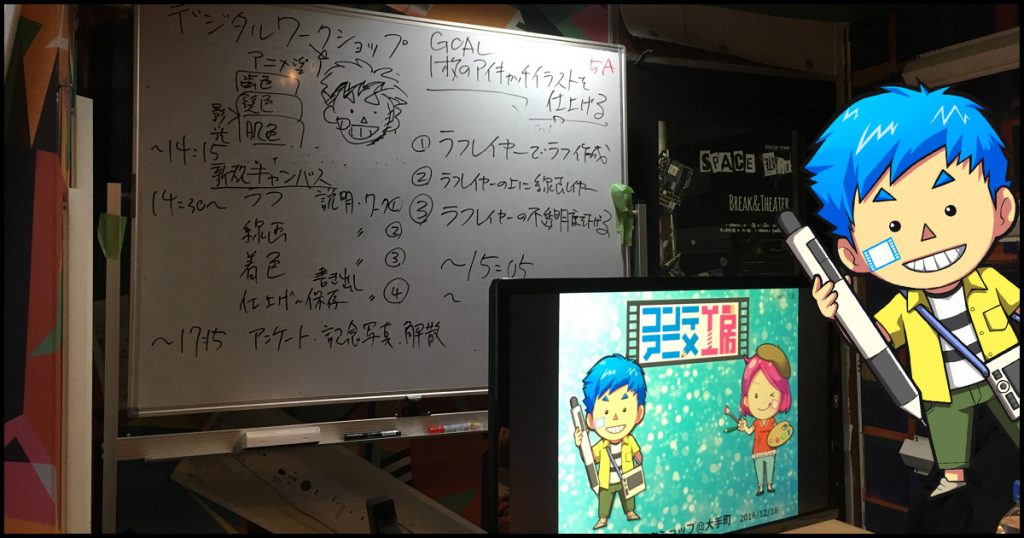 デジタルワークショップ
アニメ塗
歯色
髪色
肌色
影
光
GOAL
1枚のアイキャッチイラストを
仕上げる
5A
～14:15
新規キャンバス
14:30～ ラフ 説明・ワーク①
線画 〃 ②
着色 〃 ③
書き出し
仕上げ～保存 〃 ④
～17:15 アンケート・記念写真・解散
① ラフレイヤーでラフ作成
② ラフレイヤーの上に線画レイヤー
③ ラフレイヤーの不透明度下げる
～15:05
～
SPACE
BREAK&THEATER
コンテ
アニメ工房
ver 1.0
ショップ@大手町 2016/12/18